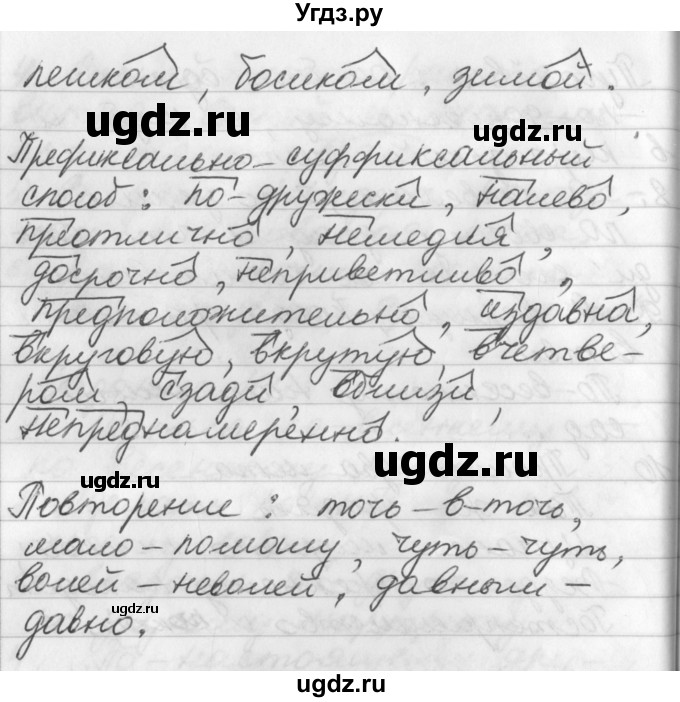 Угдз.ру
пешком, босиком, зимой.
ugdz.ru
ugdz.ru
Префиксально-суффиксальный
способ: по-дружески, налево,
преотлично, немедля,
досрочно, неприветливо,
предположительно, издавна,
вкруговую, вкрутую, вчетве-
ром, сзади, вблизи,
непреднамеренно.
ugdz.ru
ugdz.ru
Повторение: точь-в-точь,
мало-помалу, чуть-чуть,
волей-неволей, давным-
ugdz.ru
давно.
ugdz.ru